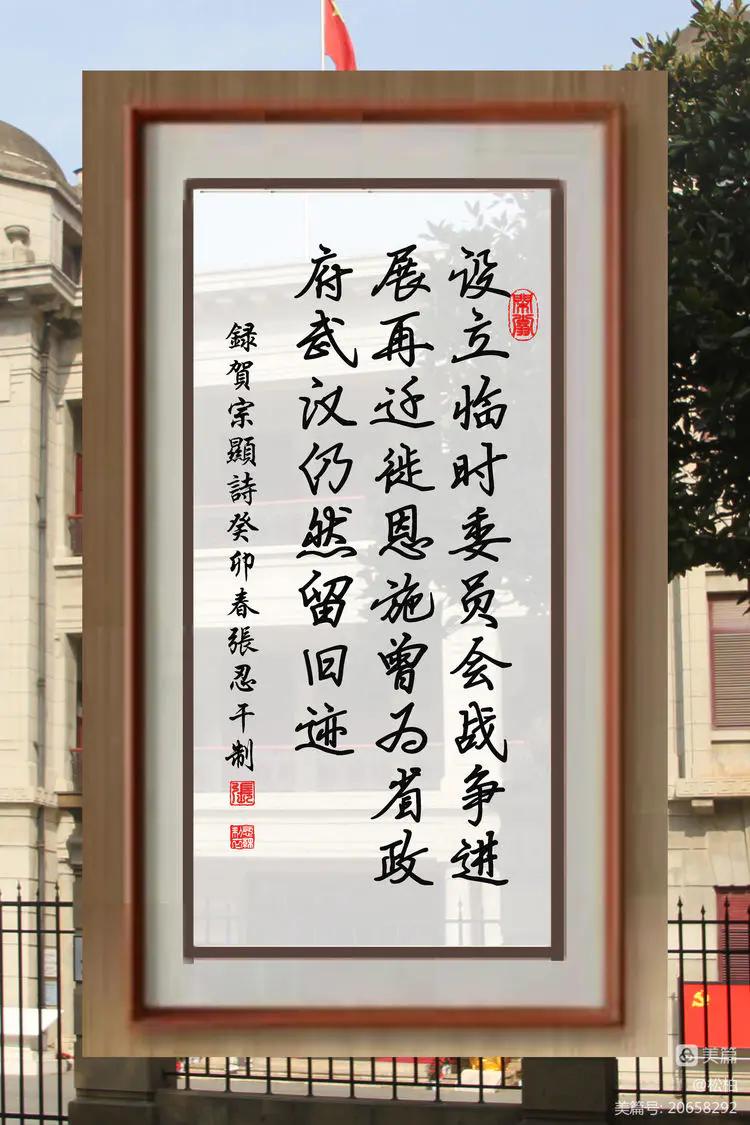 设立临时委员会战争进
展再迁徙恩施曾为省政
府武汉仍然留旧迹
録賀宗顯詩癸卯春張忍干制
張
美篇
@松柏
美篇号: 20658292